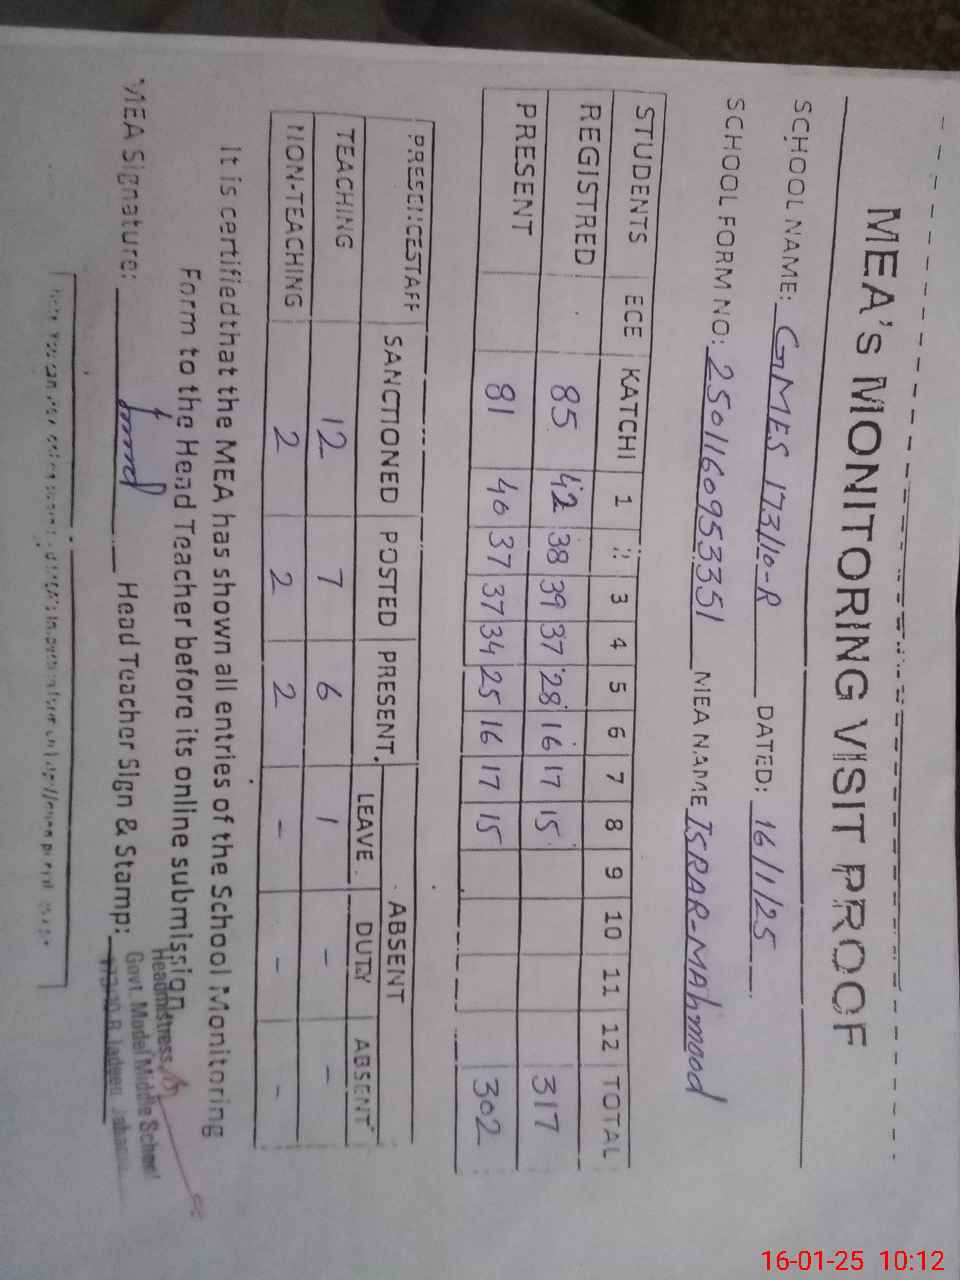 MEA's MONITORING VISIT PROOF
SCHOOL NAME: GMES 173/10-R DATED: 16/1/25
SCHOOL FORM NO: 25011609533351 MEA NAME ISRAR-MAhmood
STUDENTS ECE KATCHI 1 2 3 4 5 6 7 8 9 10 11 12 TOTAL
REGISTRED 85 42 38 39 37 28 16 17 15 317
PRESENT 81 40 37 37 34 25 16 17 15 302
PRESENCESTAFF SANCTIONED POSTED PRESENT ABSENT
LEAVE DUTY ABSENT
TEACHING 12 7 6 1 - -
NON-TEACHING 2 2 2 - - -
It is certified that the MEA has shown all entries of the School Monitoring
Form to the Head Teacher before its online submission
MEA Signature: Head Teacher Sign & Stamp:
Headmistress
Govt. Model Middle School
173/10.R
16-01-25 10:12